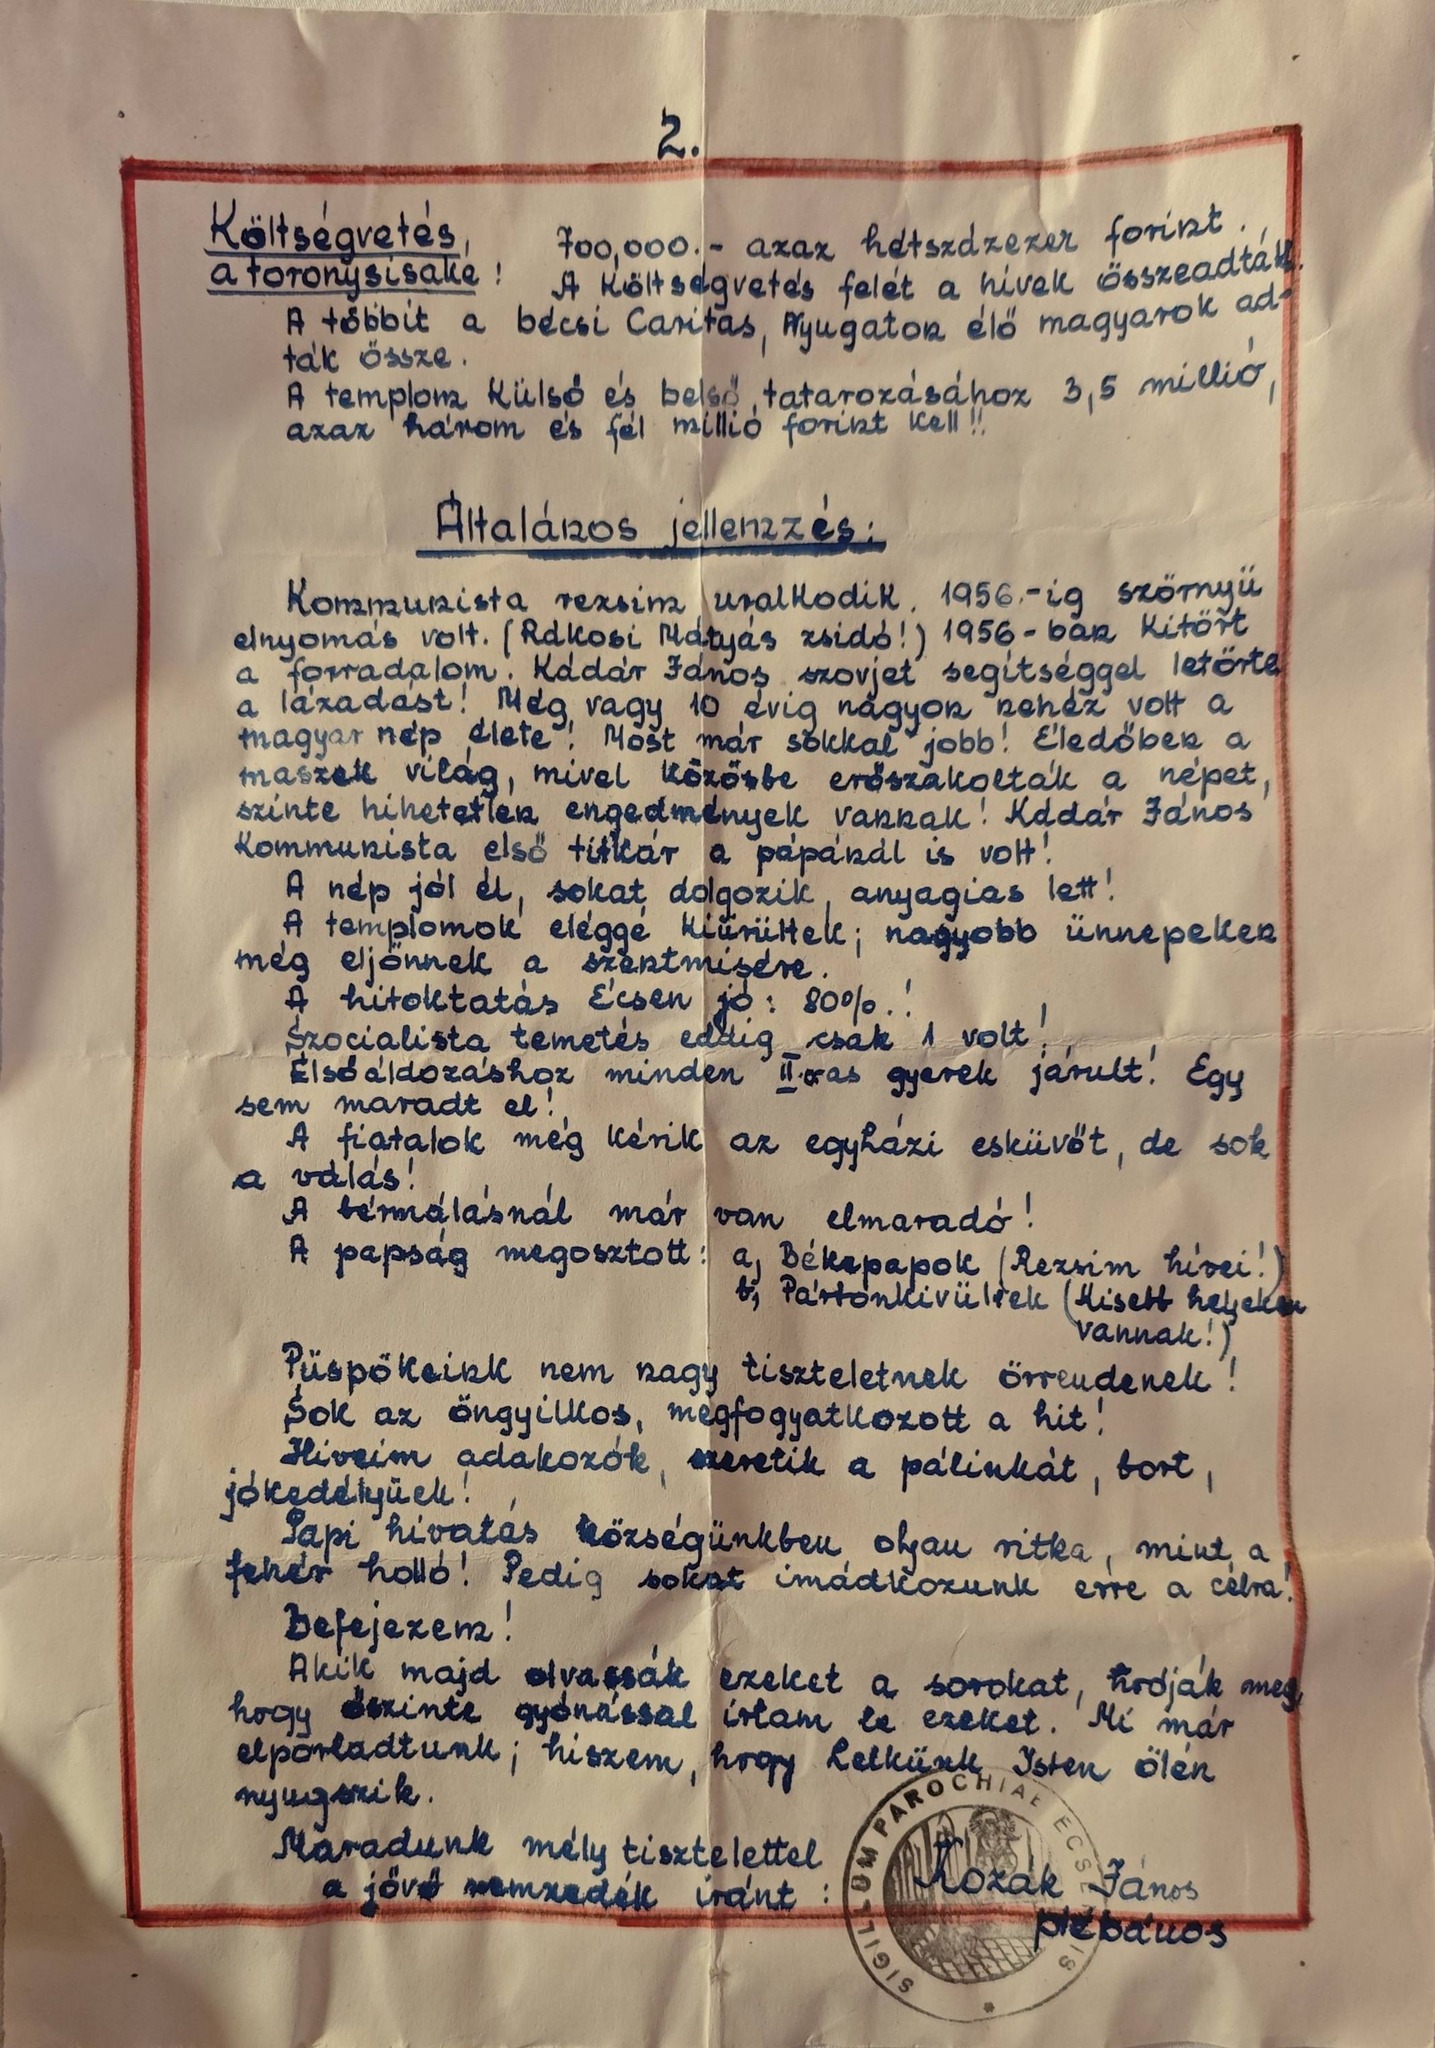 2.
Költségvetés, 700,000.- azaz hétszázezer forint.
a toronysisaké! A költségvetés felét a hívek összeadták.
A többit a bécsi Caritas, Nyugaton élő magyarok ad-
ták össze.
A templom külső és belső tatarozásához 3,5 millió,
azaz három és fél millió forint kell!!
Általános jellemzés:
Kommunista rezsim uralkodik. 1956.-ig szörnyű
elnyomás volt. (Rákosi Mátyás zsidó!) 1956-ban kitört
a forradalom. Kádár János szovjet segítséggel letörte
a lázadást! Még vagy 10 évig nagyon nehéz volt a
magyar nép élete! Most már sokkal jobb! Éledőben a
maszek világ, mivel közösbe erőszakolták a népet,
szinte hihetetlen engedmények vannak! Kádár János
kommunista első titkár a pápánál is volt!
A nép jól él, sokat dolgozik, anyagias lett!
A templomok eléggé kiürültek; nagyobb ünnepeken
még eljönnek a szentmisére.
A hitoktatás Écsen jó: 80%.!
Szocialista temetés eddig csak 1 volt!
Elsőáldozáshoz minden II.-as gyerek járult! Egy
sem maradt el!
A fiatalok még kérik az egyházi esküvőt, de sok
a válás!
A bérmálásnál már van elmaradó!
A papság megosztott: a, Békepapok (Rezsim hívei!)
b, Pártonkívüliek (Kisebb helyeken
vannak!)
Püspökeink nem nagy tiszteletnek örvendenek!
Sok az öngyilkos, megfogyatkozott a hit!
Híveim adakozók, szeretik a pálinkát, bort,
jókedélyűek!
Papi hivatás községünkben olyan ritka, mint a
fehér holló! Pedig sokat imádkozunk erre a célra!
Befejezem!
Akik majd olvassák ezeket a sorokat, tudják meg,
hogy őszinte gyónással írtam le ezeket. Mi már
elporladtunk; hiszem, hogy lelkünk Isten ölén
nyugszik.
Maradunk mély tisztelettel
a jövő nemzedék iránt:
Kozák János
plébános
SIGILLUM PAROCHIAE ECSIENSIS